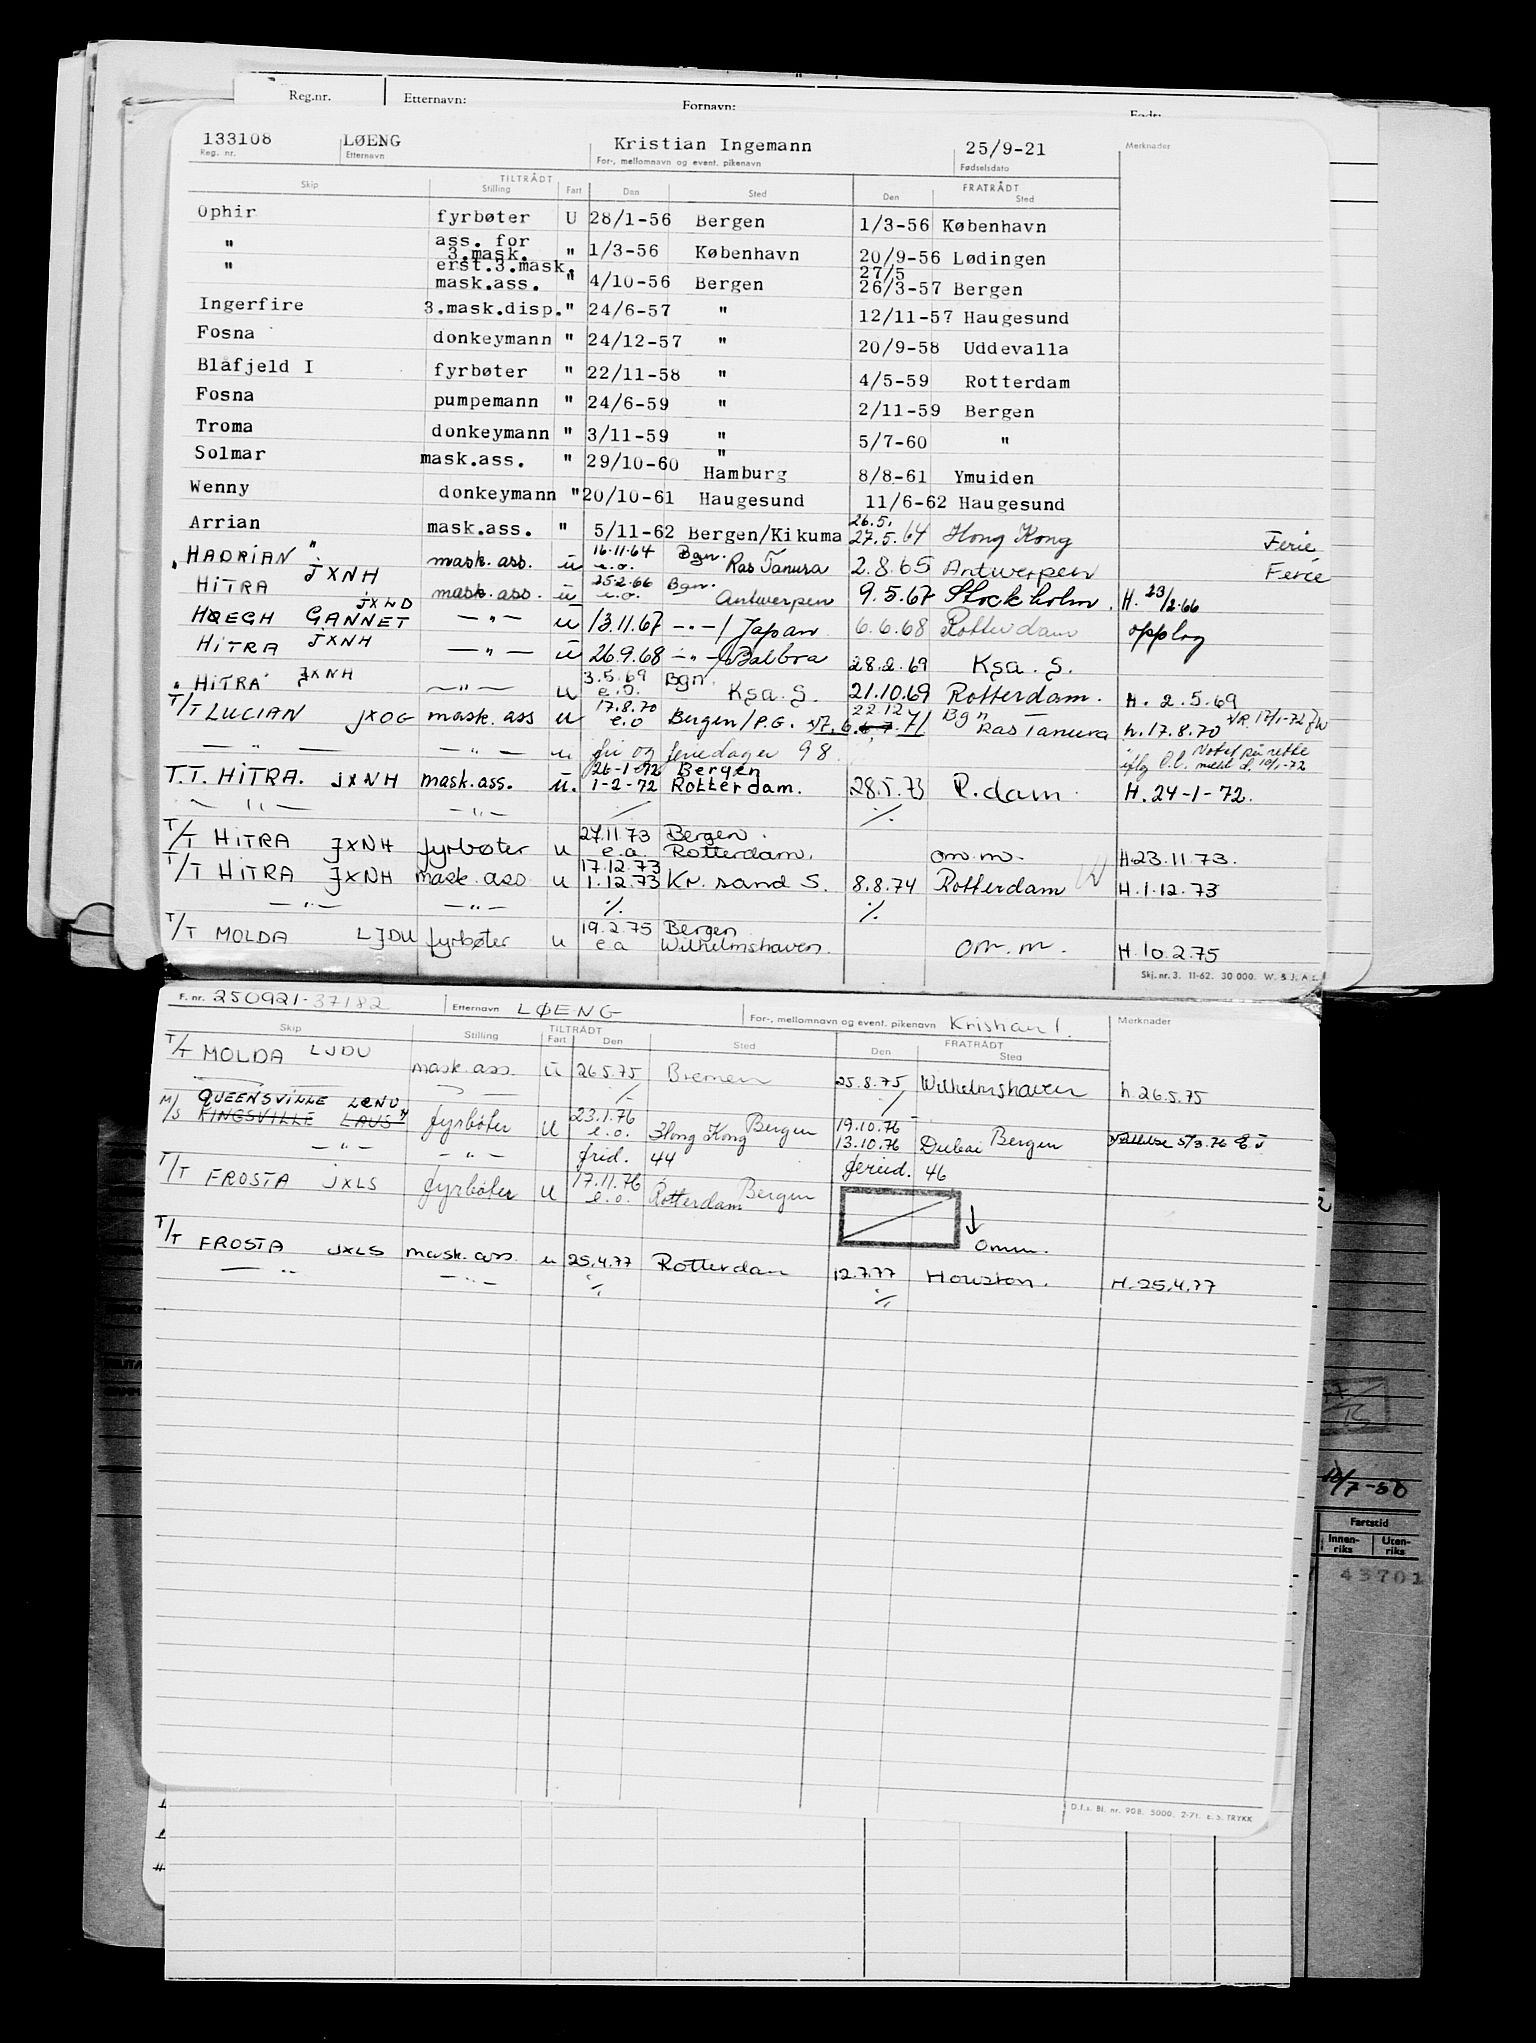 Reg.nr. Etternavn: Fornavn: Født:
133108 LØENG Kristian Ingemann 25/9-21
Reg. nr. Etternavn For-, mellomnavn og event. pikenavn Fødselsdato Merknader
TILTRÅDT FRATRÅDT
Skip Stilling Fart Den Sted Den Sted
Ophir fyrbøter U 28/1-56 Bergen 1/3-56 København
" ass. for 3.mask. " 1/3-56 København 20/9-56 Lødingen
" erst.3.mask. mask.ass. " 4/10-56 Bergen 27/5 26/3-57 Bergen
Ingerfire 3.mask.disp." 24/6-57 " 12/11-57 Haugesund
Fosna donkeymann " 24/12-57 " 20/9-58 Uddevalla
Blåfjeld I fyrbøter " 22/11-58 " 4/5-59 Rotterdam
Fosna pumpemann " 24/6-59 " 2/11-59 Bergen
Troma donkeymann " 3/11-59 " 5/7-60 "
Solmar mask.ass. " 29/10-60 " Hamburg 8/8-61 Ymuiden
Wenny donkeymann " 20/10-61 Haugesund 11/6-62 Haugesund
Arrian mask.ass. " 5/11-62 Bergen/Kikuma 26.5. 27.5.64 Hong Kong Ferie
" HADRIAN " mask. ass. u 16.11.64 e.o. Bgn. Ras Tanura 2.8.65 Antwerpen Ferie
HITRA JXNH mask. ass. u 25.2.66 e.o. Bgn. Antwerpen 9.5.67 Stockholm. H. 23/2.66
HØEGH GANNET JXND — " — u 13.11.67 — " — / Japan 6.6.68 Rotterdam opplag
HITRA JXNH — " — u 26.9.68 — " — / Balboa 28.2.69 Ksa. S.
" HITRA JXNH — " — u 3.5.69 e.o. Bgn. Ksa. S. 21.10.69 Rotterdam. H. 2.5.69
T/T LUCIAN JXOG mask. ass u 17.8.70 e.o Bergen/P.G. 22.12.71 Bgn Ras Tanura h.17.8.70
— " — — " — u fri og feriedager 98
T.T. HITRA. JXNH mask.ass. u. 26-1-72 Bergen 1-2-72 Rotterdam. 28.5.73 R.dam H. 24-1-72.
— " — — " — ./. ./.
T/T HITRA JXNH fyrbøter u 27.11.73 Bergen. e.o. Rotterdam. om.m. H.23.11.73.
T/T HITRA JXNH mask. ass u 17.12.73 1.12.73 Kr. sand S. 8.8.74 Rotterdam H.1.12.73
— " — — " — ./. ./.
T/T MOLDA LJDU fyrbøter u 19.2.75 Bergen e.o Wilhelmshaven. om.m. H.10.2.75
Skj. nr. 3. 11-62. 30 000. W. & J. A.s.
F. nr. 250921-37182 Etternavn LØENG For-, mellomnavn og event. pikenavn Kristian I. Merknader
TILTRÅDT FRATRÅDT
Skip Stilling Fart Den Sted Den Sted
T/T MOLDA LJDU mask. ass. u 26.5.75 Bremen 25.8.75 Wilhelmshaven h 26.5.75
QUEENSVILLE LCNU
M/S KINGSVILLE fyrbøter u 23.1.76 e.o. Hong Kong Bergen 19.10.76 13.10.76 Dubai Bergen 5/3.76
— " — — " — frid. 44 feried. 46
T/T FROSTA JXLS fyrbøter u 17.11.76 e.o. Rotterdam Bergen
omm.
T/T FROSTA JXLS mask. ass. u 25.4.77 Rotterdam 12.7.77 Houston. H. 25.4.77
— " — — " — ./. ./.
12/7-50
Fartstid
Innen-riks Uten-riks
43701
D.f.s. Bl. nr. 908. 5000. 2-71. E. S. TRYKK